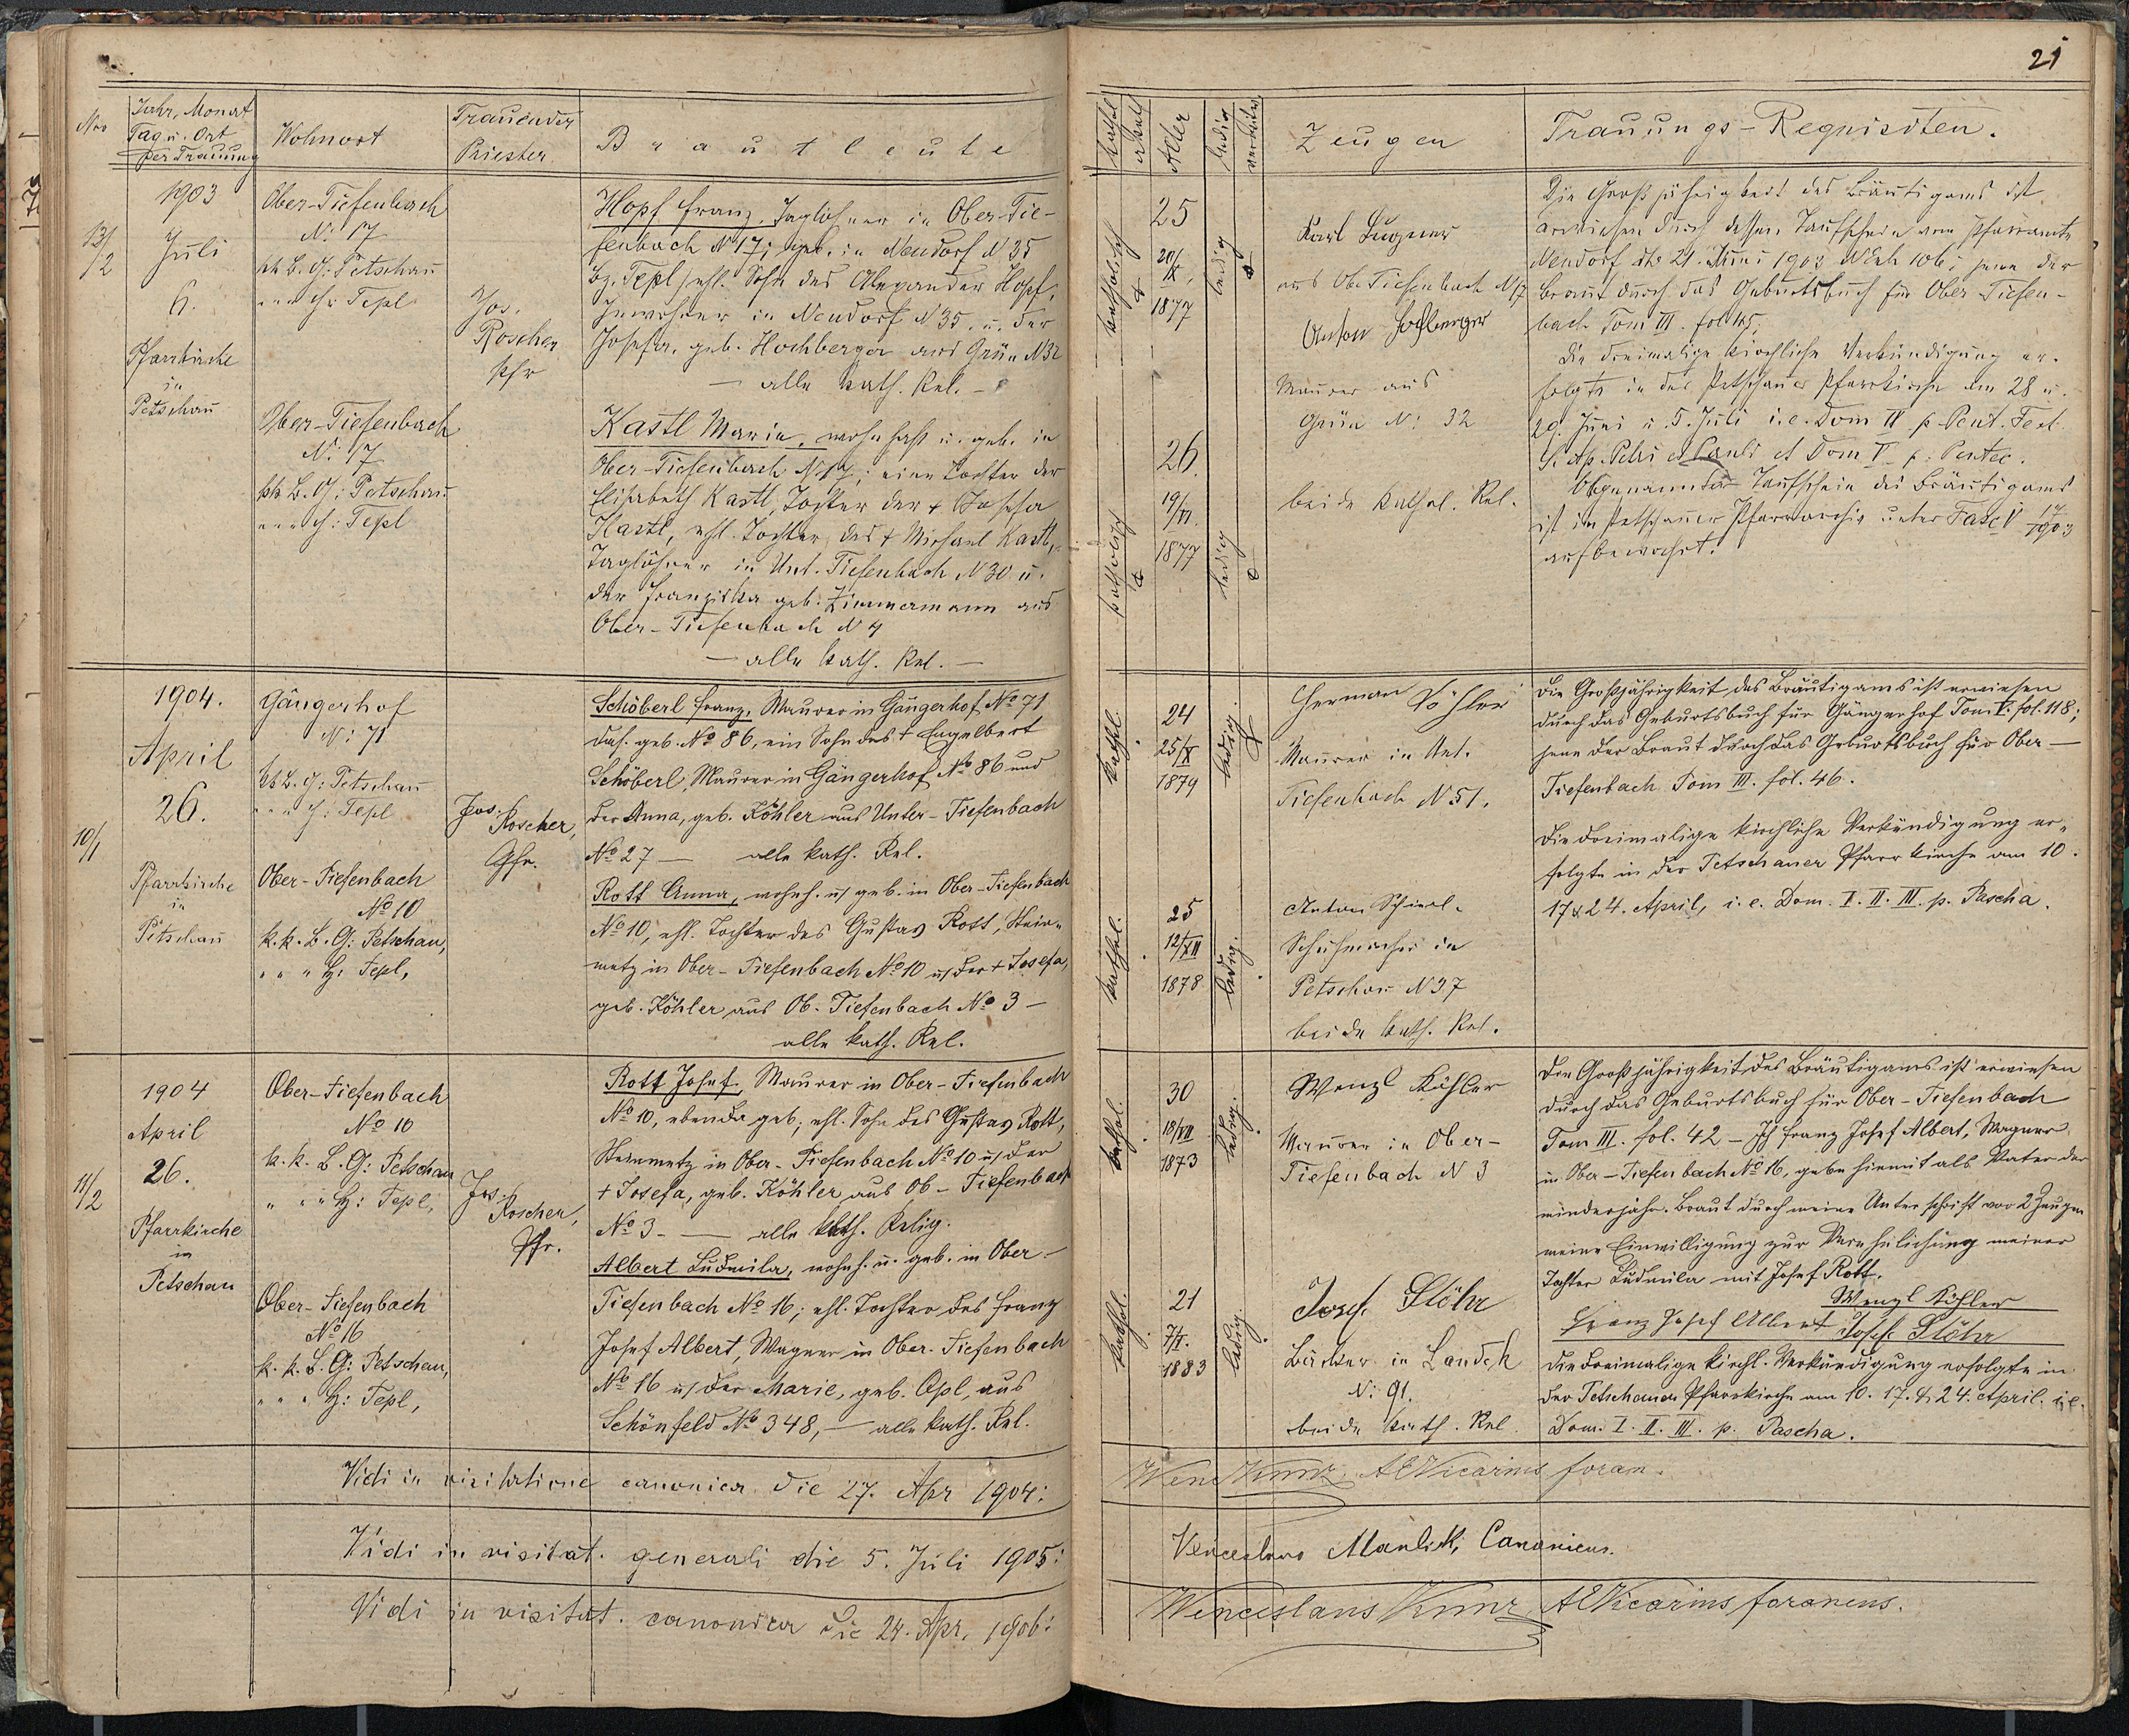 21
Nro
Jahr, Monat
Tag u. Ort
der Trauung
Wohnort
Trauender
Priester
Brautleute
kathol
akath
Alter
ledig
verwitw.
Zeugen
Trauungs-Requisiten.
13/2
1903
Juli
6.
Pfarrkirche
in
Petschau
Ober-Tiefenbach
N: 17
kk B. G: Petschau
" " " H: Tepl
Jos.
Roscher
Pfr
Hopf Franz, Taglöhner in Ober-Tie-
fenbach N 17; geb. in Neudorf N 35
Bz. Tepl, ehl. Sohn des Alexander Hopf,
Inwohner in Neudorf N 35. u. der
Josefa, geb. Hochberger aus Grün N 32
— alle kath. Rel. —
Ober-Tiefenbach
N: 17
kk B. G: Petschau
" " " H: Tepl
Kastl Maria, wohnhaft u. geb. in
Ober-Tiefenbach N 17; eine Tochter der
Elisabeth Kastl, Tochter der + Josefa
Kastl, ehl. Tochter des + Michael Kastl,
Taglöhner in Unt. Tiefenbach N 30 u.
der Franziska geb. Zimmermann aus
Ober-Tiefenbach N 4
— alle kath. Rel. —
katholisch
25
20/X
1877
ledig
Karl Lugner
aus Ob. Tiefenbach N 17
Anton Hochberger
Maurer aus
Grün N: 32
katholisch
26
19/VI.
1877
ledig
beide kathol. Rel.
Die Großjährigkeit des Bräutigams ist
erwiesen durch dessen Taufschein vom Pfarramte
Neudorf dto 21. Juni 1903 NExh 106; jene der
Braut durch das Geburtsbuch für Ober Tiefen-
bach Tom III. fol 45.
Die dreimalige kirchliche Verkündigung er-
folgte in der Petschauer Pfarrkirche am 28 u.
29. Juni u. 5. Juli i. e. Dom IV p. Pent. Fest.
S. Ap. Petri et Pauli et Dom V p: Pentec.
Obgenannter Taufschein des Bräutigams
ist im Petschauer Pfarrarchiv unter Fasc V 14/1903
aufbewahrt.
10/1
1904.
April
26.
Pfarrkirche
in
Petschau
Gängerhof
N: 71
kk B. G: Petschau
" " " H: Tepl
Jos. Roscher,
Pfr.
Schöberl Franz, Maurer in Gängerhof No 71
das. geb. No 86, ein Sohn des + Engelbert
Schöberl, Maurer in Gängerhof No 86 und
der Anna, geb. Köhler aus Unter-Tiefenbach
No 27 — alle kath. Rel.
Ober-Tiefenbach
No 10
k. k. B. G: Petschau,
" " " H: Tepl,
Rott Anna, wohnh. u. geb. in Ober-Tiefenbach
No 10, ehl. Tochter des Gustav Rott, Stein-
metz in Ober-Tiefenbach No 10 u. der + Josefa,
geb. Köhler aus Ob. Tiefenbach No 3 —
alle kath. Rel.
kathl.
24
25/X
1879
ledig.
Herman Köhler
Maurer in Unt.
Tiefenbach N 51.
kathol.
25
12/XII
1878
ledig.
Anton
Schuhmacher in
Petschau N 37
beide kath. Rel.
Die Großjährigkeit des Bräutigams ist erwiesen
durch das Geburtsbuch für Gängerhof Tom V. fol. 118;
jene der Braut durch das Geburtsbuch für Ober-
Tiefenbach Tom III. fol. 46.
Die dreimalige kirchliche Verkündigung er-
folgte in der Petschauer Pfarrkirche am 10.
17 & 24. April, i. e. Dom. I. II. III. p. Pascha.
11/2
1904
April
26.
Pfarrkirche
in
Petschau
Ober-Tiefenbach
No 10
k. k. B. G: Petschau
" " " H: Tepl,
Jos. Roscher,
Pfr.
Rott Josef, Maurer in Ober-Tiefenbach
No 10, ebenda geb., ehl. Sohn des Gustav Rott,
Steinmetz in Ober-Tiefenbach No 10 u. der
+ Josefa, geb. Köhler aus Ob-Tiefenbach
No 3 — alle kath. Relig.
Ober-Tiefenbach
No 16
k. k. B. G: Petschau,
" " " H: Tepl,
Albert Ludmila, wohnh. u. geb. in Ober-
Tiefenbach No 16; ehl. Tochter des Franz
Josef Albert, Wagner in Ober-Tiefenbach
No 16 u. der Marie, geb. Opl, aus
Schönfeld No 348, — alle kath. Rel.
kathol.
30
18/VII
1873
ledig.
Wenzl Köhler
Maurer in Ober-
Tiefenbach N 3
kathol.
21
7/X.
1883
ledig.
Josef Stöhr
Bäcker in Landek
N: 91.
beide kath. Rel.
Die Großjährigkeit des Bräutigams ist erwiesen
durch das Geburtsbuch für Ober-Tiefenbach
Tom III. fol. 42 — Ich Franz Josef Albert, Wagner
in Ober-Tiefenbach No 16, gebe hiemit als Vater der
minderjähr. Braut durch meine Unterschrift vor 2 Zeugen
meine Einwilligung zur Verehelichung meiner
Tochter Ludmila mit Josef Rott.
Wenzl Köhler
Franz Josef Albert Josef Stöhr
Die dreimalige kirchl. Verkündigung erfolgte in
der Petschauer Pfarrkirche am 10. 17. & 24. April i. e.
Dom. I. II. III. p. Pascha.
Vidi in visitatione canonica die 27. Apr 1904: Wenc Kunz, AEVicarius foran.
Vidi in visitat. generali die 5. Juli 1905: Canonicus.
Vidi in visitat. canonica die 24. Apr. 1906: Wenceslaus Kunz AEVicarius foraneus.